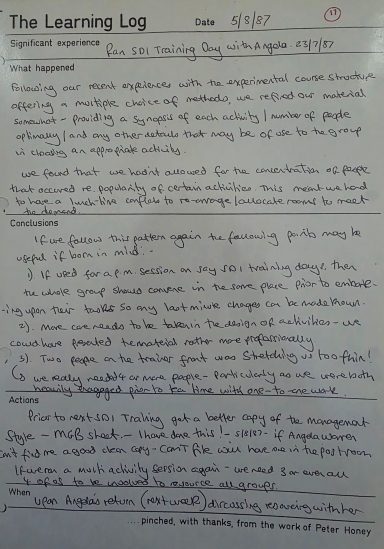 17
The Learning Log Date 5/8/87
Significant experience Ran SDI Training Day with Angela 23/7/87
What happened
Following our recent experiences with the experimental course structure
offering a multiple choice of methods, we refined our material
somewhat - providing a synopsis of each activity / number of people
optimally / and any other details that may be of use to the group
in choosing an appropriate activity.
We found that we hadn't allowed for the concentration of people
that occured re. popularity of certain activities. This meant we had
to have a lunch-time confab to re-arrange/allocate rooms to meet
the demand.
Conclusions
If we follow this pattern again the following points may be
useful if born in mind:-
1) If used for a p.m. session on say SDI training days, then
the whole group should convene in the same place prior to embark-
-ing upon their tasks so any last minute changes can be made known.
2). More care needs to be taken in the design of activities - we
could have presented the material rather more professionally
3). Two people on the trainer front was stretching us too thin!
we really needed 4 or more people - particularly as we were both
heavily engaged prior to tea time with one-to-one work.
Actions
Prior to next SDI Training get a better copy of the management
Style - MGB sheet - I have done this! - 5/8/87 - if Angela Warren
can't find me a good clean copy - Can T file will have one in the post room
If we run a much activity session again - we need 3 or even all
4 of us to be involved to resource all groups.
When upon Angela's return (next week) discussing resourcing with her
....pinched, with thanks, from the work of Peter Honey